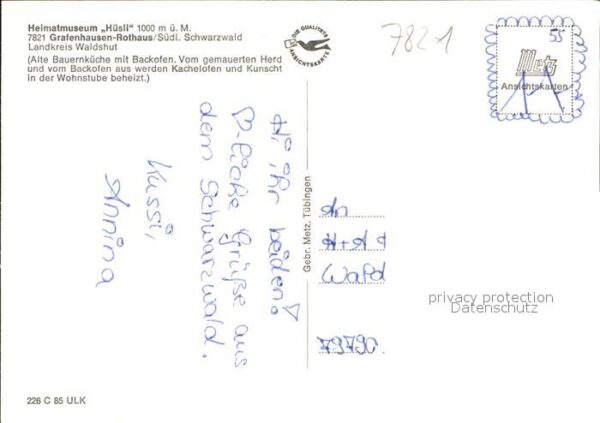 Heimatmuseum „Hüsli" 1000 m ü. M.
7821 Grafenhausen-Rothaus/Südl. Schwarzwald
Landkreis Waldshut
(Alte Bauernküche mit Backofen. Vom gemauerten Herd
und vom Backofen aus werden Kachelofen und Kunscht
in der Wohnstube beheizt.)
DIE QUALITÄTS
ANSICHTSKARTE
7821
55
Metz
Ansichtskarten
Hi ihr beiden!
Grüße aus
dem Schwarzwald.
Kussi,
Annina
Gebr. Metz, Tübingen
An
Wald
79790
privacy protection
Datenschutz
226 C 85 ULK